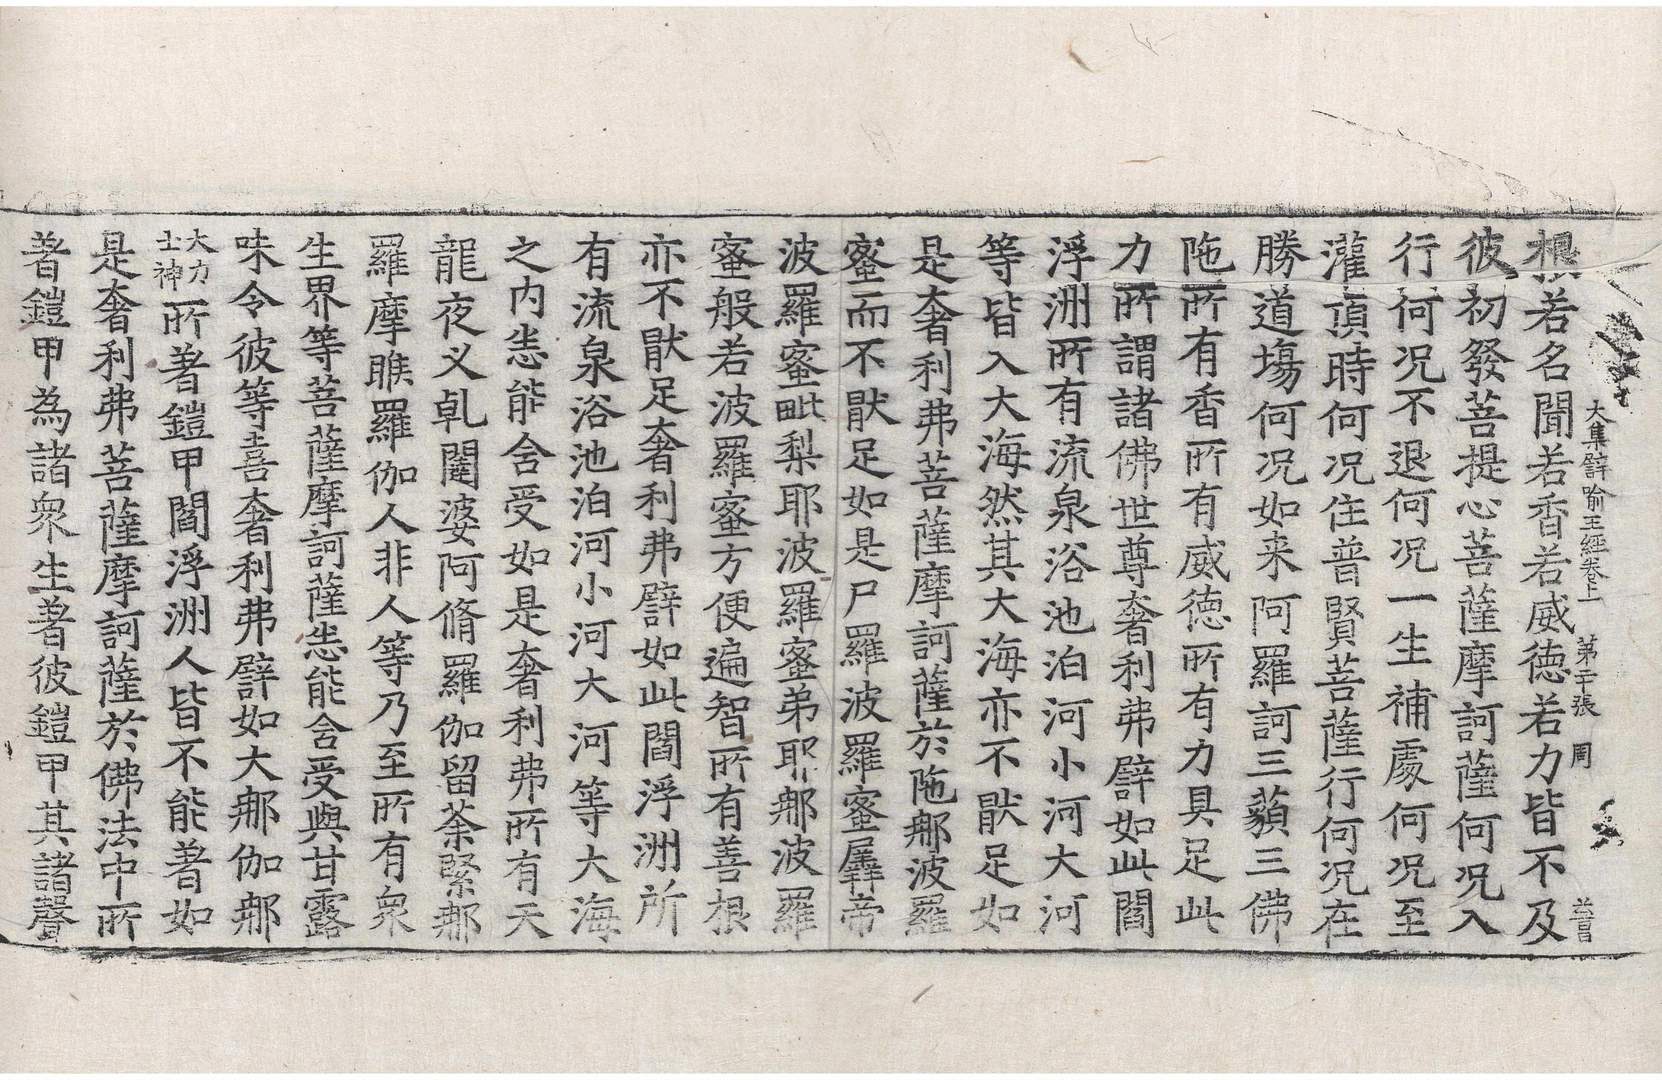 大集譬喻王經卷上 第二張 周
根若名聞若香若威德若力皆不及
彼初發菩提心菩薩摩訶薩何况入
行何况不退何况一生補處何况至
灌頂時何况住普賢菩薩行何况在
勝道場何况如来阿羅訶三藐三佛
陁所有香所有威德所有力具足此
力所謂諸佛世尊奢利弗譬如此閻
浮洲所有流泉浴池泊河小河大河
等皆入大海然其大海亦不猒足如
是奢利弗菩薩摩訶薩於陁那波羅
蜜而不猒足如是尸羅波羅蜜羼帝
波羅蜜毗梨耶波羅蜜弟耶那波羅
蜜般若波羅蜜方便遍智所有善根
亦不猒足奢利弗譬如此閻浮洲所
有流泉浴池泊河小河大河等大海
之内悉能含受如是奢利弗所有天
龍夜义乹闥婆阿脩羅伽留荼緊那
羅摩睺羅伽人非人等乃至所有衆
生界等菩薩摩訶薩悉能含受與甘露
味令彼等喜奢利弗譬如大那伽那
大力士神所著鎧甲閻浮洲人皆不能著如
是奢利弗菩薩摩訶薩於佛法中所
著鎧甲為諸衆生著彼鎧甲其諸聲